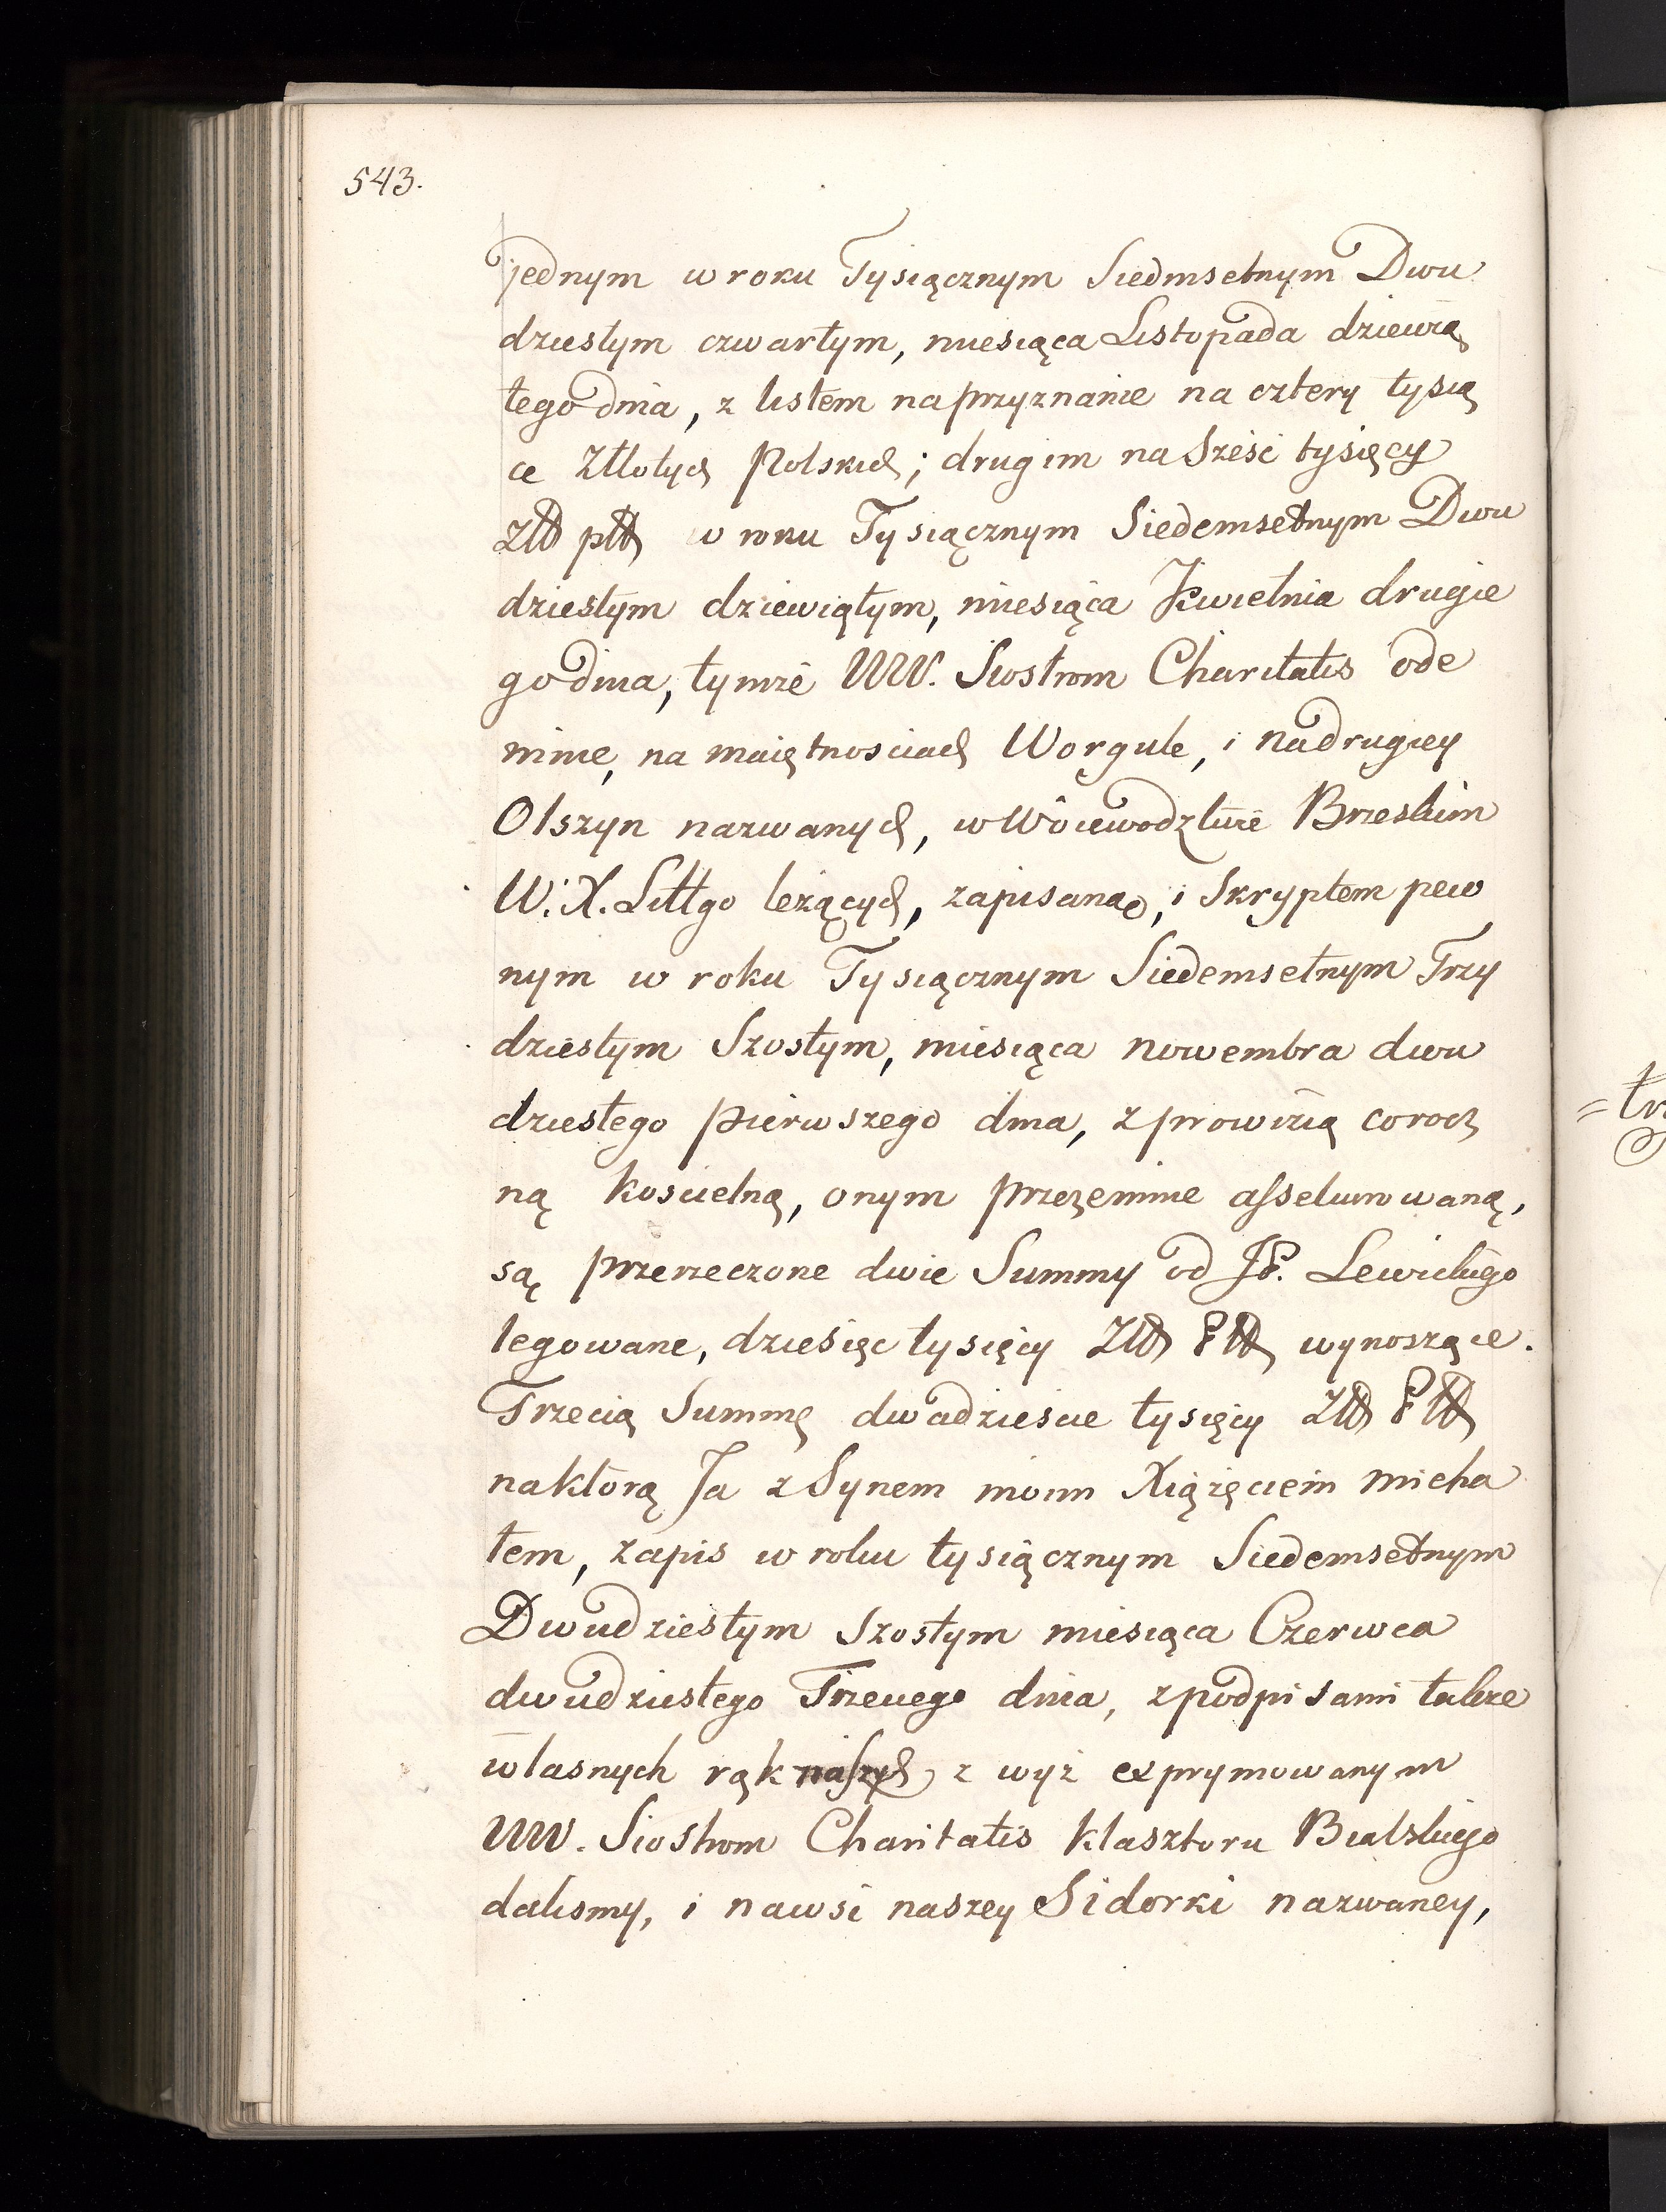 543.
jednym w roku Tysiącznym Siedmsetnym Dwu
dziestym czwartym, miesiąca Listopada dziewią
tego dnia, z listem na przyznanie na cztery tysią
ce Złłotych Polskich; drugim na Sześć tysięcy
Złł płł w roku Tysiącznym Siedemsetnym Dwu
dziestym dziewiątym, miesiąca Kwietnia drugie
go dnia, tymże WW. Siostrom Charitatis ode
mnie, na maiętnosciach Worgule, i na drugiey
Olszyn nazwanych, w Woiewodztwie Brzeskim
W. X. Littgo leżących, zapisane, i Skryptem pew
nym w roku Tysiącznym Siedemsetnym Trzy
dziestym Szostym, miesiąca nowembra dwu
dziestego pierwszego dnia, z prowizią corocz
ną koscielną, onym przezemnie assekurowaną,
są przerzeczone dwie Summy od JP. Lewickiego
legowane, dziesięc tysięcy Złł Płł wynoszące.
Trzecią Summę dwadziescie tysięcy Złł Płł
na ktorą Ja z Synem moim Xiążęciem Micha
łem, zapis w roku tysiącznym Siedemsetnym
Dwudziestym szostym miesiąca Czerwca
dwudziestego Trzeciego dnia, z podpisami także
własnych rąk naszych z wyż exprymowanym
WW. Siostrom Charitatis klasztoru Bialskiego
dalismy, i na wsi naszey Sidorki nazwaney,